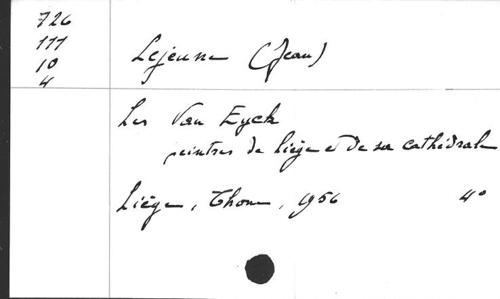 726
111
10
4
Lejeune (Jean)
Les Van Eyck
peintres de Liège et de sa cathédrale
Liège, Thone, 1956 4°